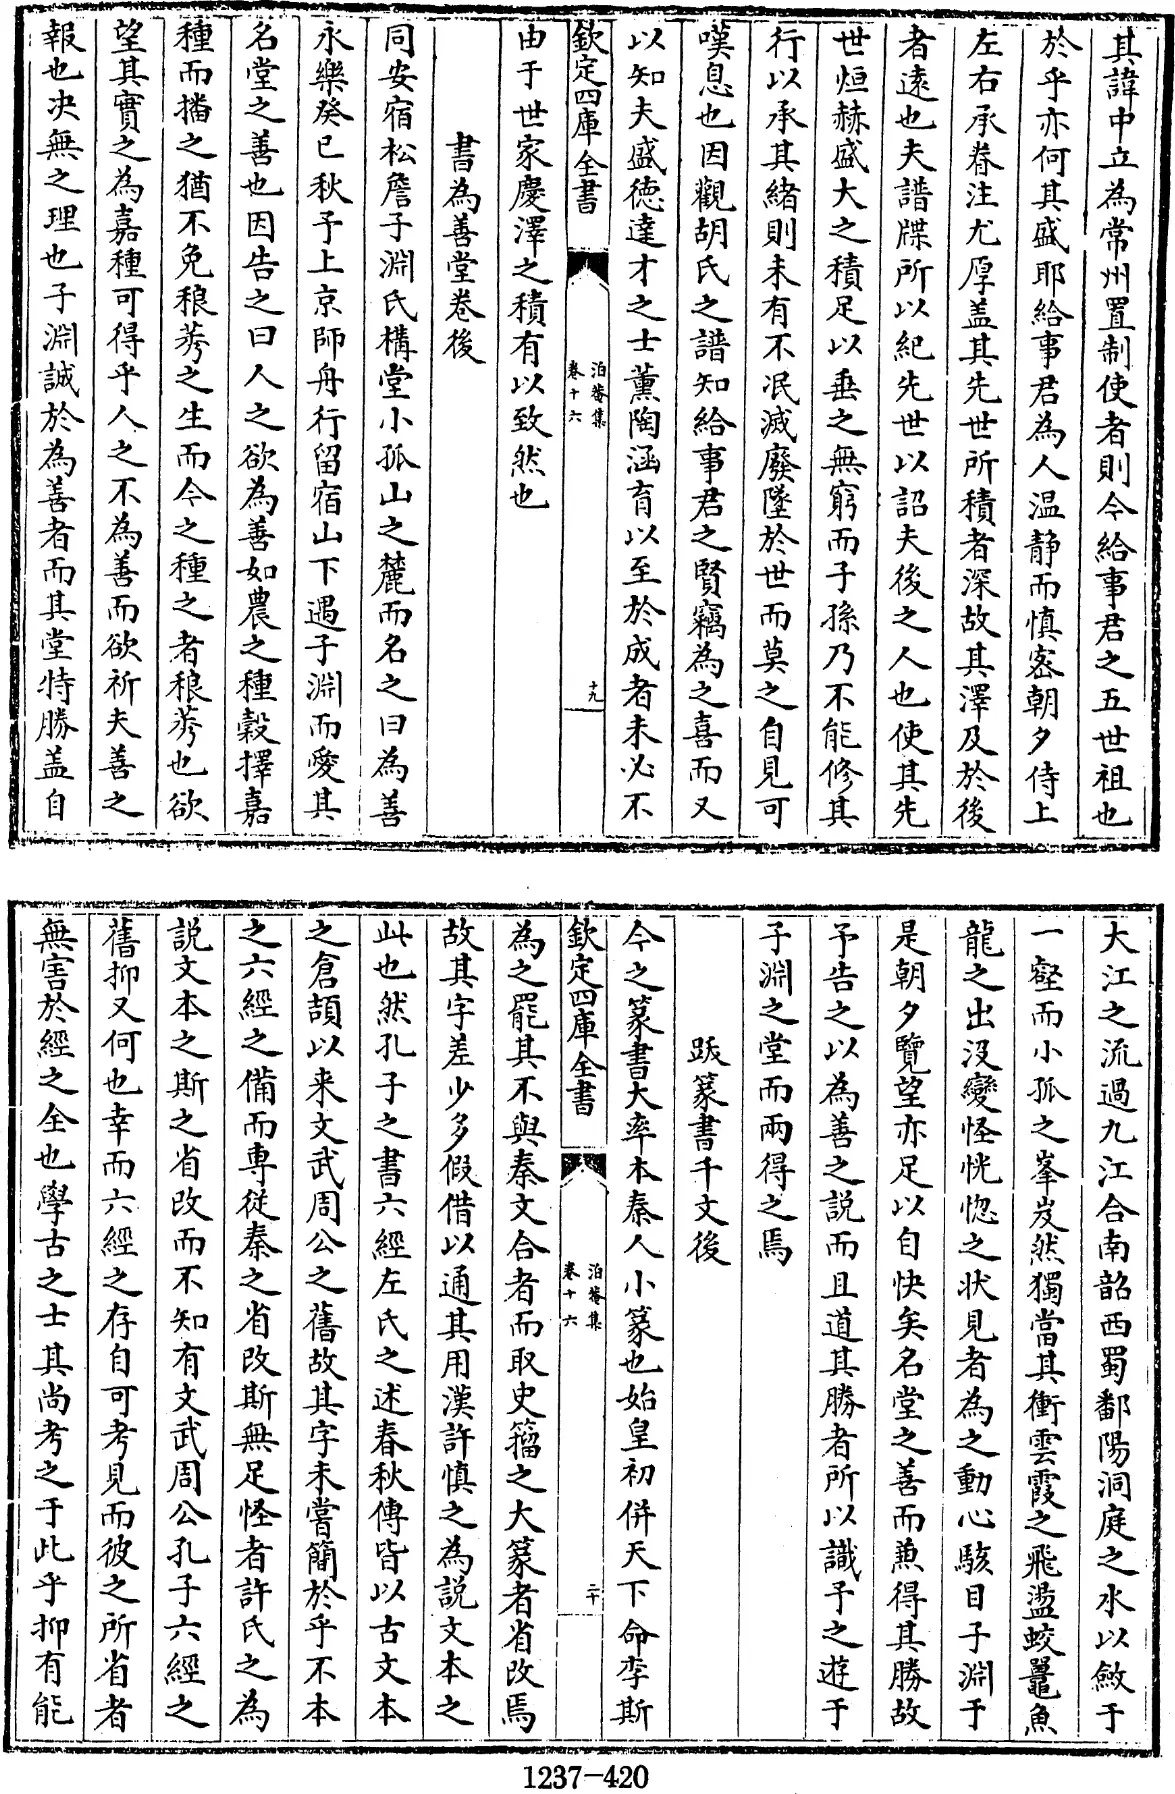 其諱中立為常州置制使者則今給事君之五世祖也
於乎亦何其盛耶給事君為人温静而慎宻朝夕侍上
左右承眷注尤厚盖其先世所積者深故其澤及於後
者遠也夫譜牒所以紀先世以詔夫後之人也使其先
世烜赫盛大之積足以垂之無窮而子孫乃不能修其
行以承其緒則未有不泯滅廢墜於世而莫之自見可
嘆息也因觀胡氏之譜知給事君之賢竊為之喜而又
以知夫盛徳達才之士薫陶涵育以至於成者未必不
欽定四庫全書
泊菴集
卷十六
十九
由于世家慶澤之積有以致然也
書為善堂卷後
同安宿松詹子淵氏構堂小孤山之麓而名之曰為善
永樂癸巳秋予上京師舟行留宿山下遇子淵而愛其
名堂之善也因告之曰人之欲為善如農之種穀擇嘉
種而播之猶不免稂莠之生而今之種之者稂莠也欲
望其實之為嘉種可得乎人之不為善而欲祈夫善之
報也决無之理也子淵誠於為善者而其堂特勝盖自
大江之流過九江合南韶西蜀鄱陽洞庭之水以斂于
一壑而小孤之峯岌然獨當其衝雲霞之飛盪蛟鼉魚
龍之出没變怪恍惚之状見者為之動心駭目子淵于
是朝夕覽望亦足以自快矣名堂之善而兼得其勝故
予告之以為善之説而且道其勝者所以識予之遊于
子淵之堂而兩得之焉
跋篆書千文後
今之篆書大率本秦人小篆也始皇初併天下命李斯
欽定四庫全書
泊菴集
卷十六
二十
為之罷其不與秦文合者而取史籀之大篆者省改焉
故其字差少多假借以通其用漢許慎之為説文本之
此也然孔子之書六經左氏之述春秋傳皆以古文本
之倉頡以来文武周公之舊故其字未嘗簡於乎不本
之六經之備而専従秦之省改斯無足怪者許氏之為
説文本之斯之省改而不知有文武周公孔子六經之
舊抑又何也幸而六經之存自可考見而彼之所省者
無害於經之全也學古之士其尚考之于此乎抑有能
1237—420